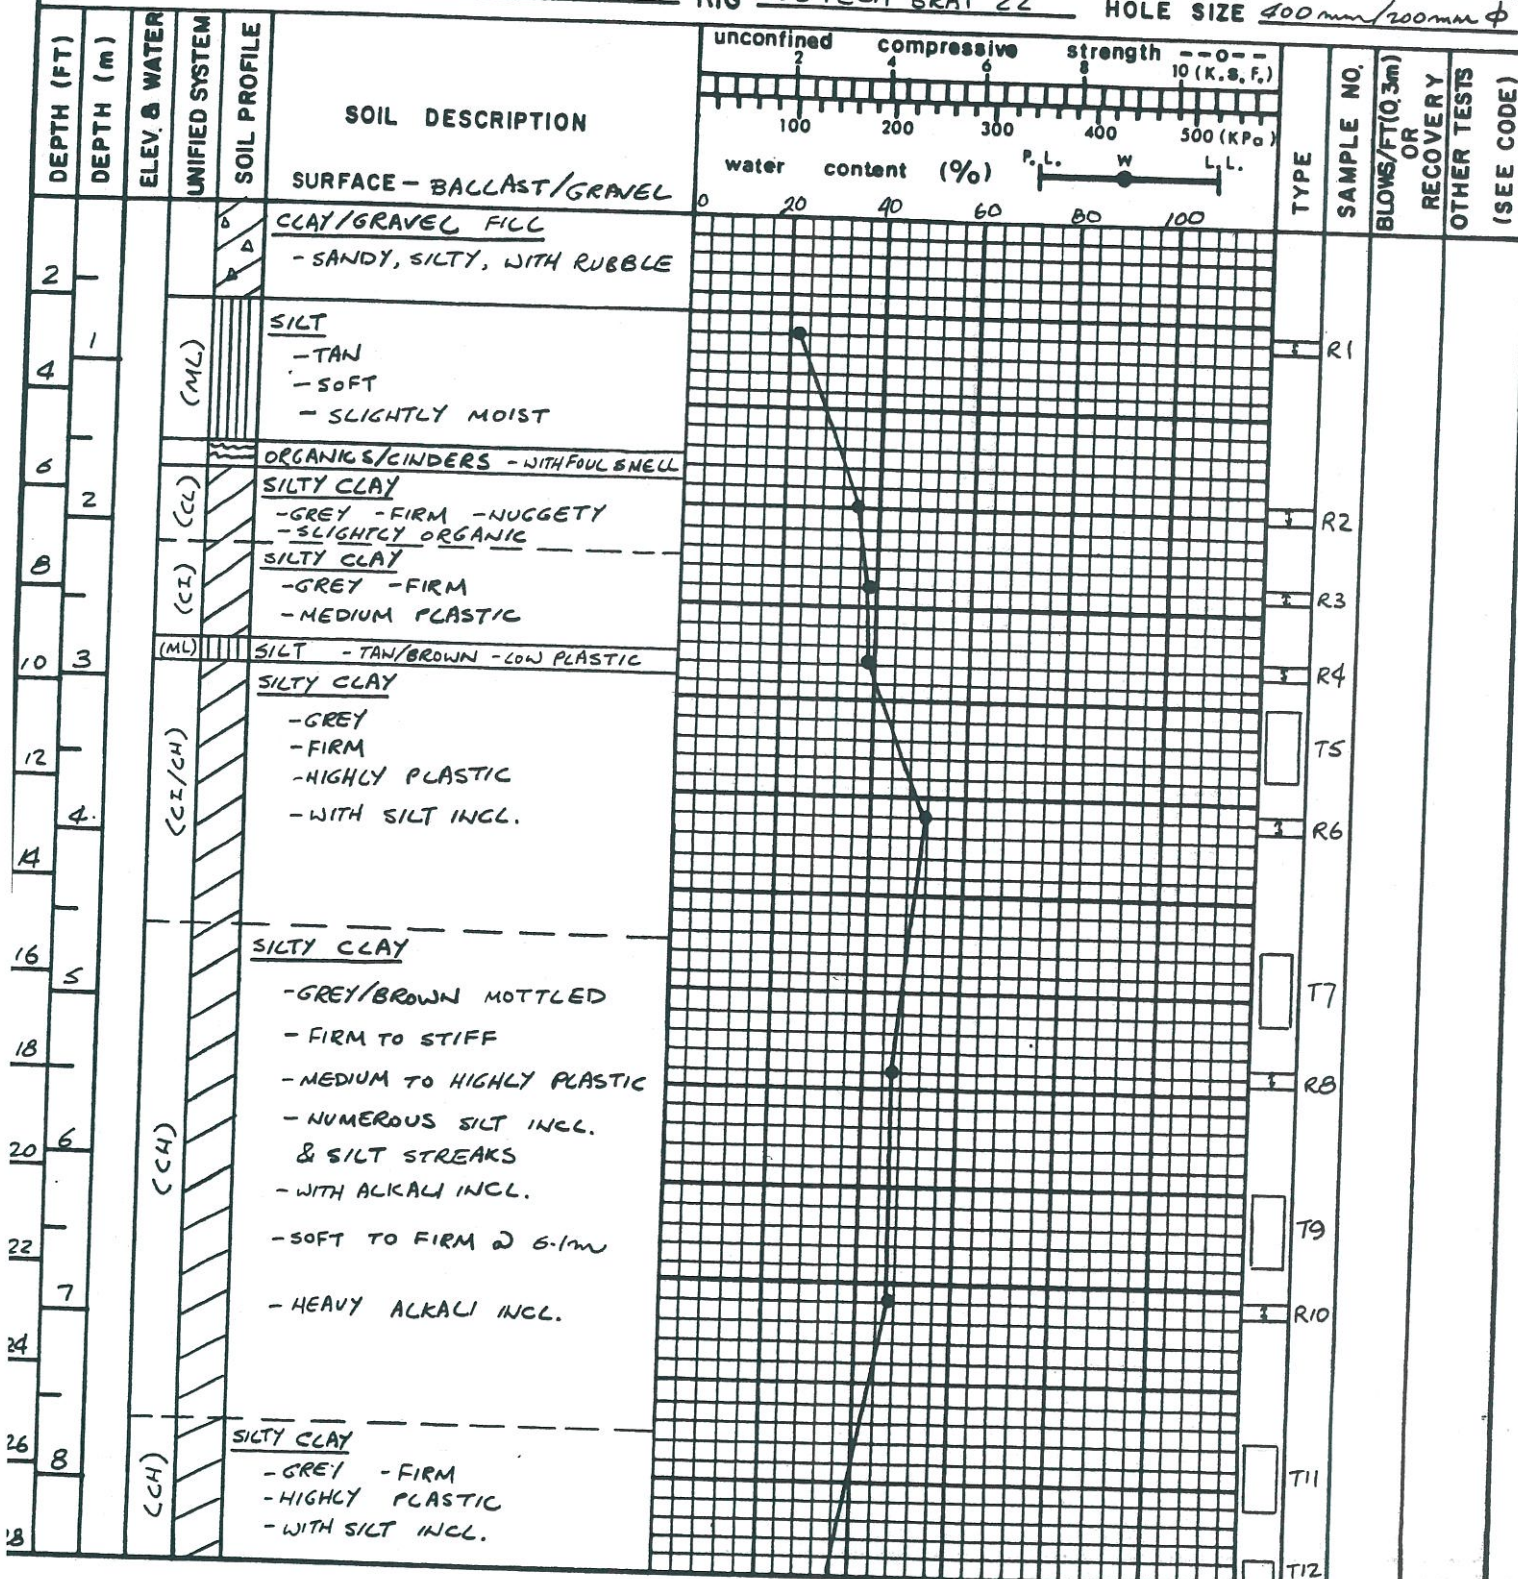 RIG
BRAT 22
HOLE SIZE 400mm/200mm ϕ
DEPTH (FT)
DEPTH (m)
ELEV. & WATER
UNIFIED SYSTEM
SOIL PROFILE
SOIL DESCRIPTION
SURFACE - BALLAST/GRAVEL
unconfined compressive strength --o--
2 4 6 8 10 (K.S.F.)
100 200 300 400 500 (KPa)
water content (%) P.L. W L.L.
0 20 40 60 80 100
TYPE
SAMPLE NO.
BLOWS/FT(0.3m)
OR
RECOVERY
OTHER TESTS
(SEE CODE)
CLAY/GRAVEL FILL
- SANDY, SILTY, WITH RUBBLE
2
SILT
1
- TAN
R1
4
(ML)
- SOFT
- SLIGHTLY MOIST
ORGANICS/CINDERS - WITH FOUL SMELL
6
SILTY CLAY
2
(CL)
- GREY - FIRM - NUGGETY
R2
- SLIGHTLY ORGANIC
SILTY CLAY
8
(CI)
- GREY - FIRM
R3
- MEDIUM PLASTIC
10
3
(ML)
SILT - TAN/BROWN - LOW PLASTIC
R4
SILTY CLAY
- GREY
- FIRM
T5
12
(CI/CH)
- HIGHLY PLASTIC
4.
- WITH SILT INCL.
R6
14
SILTY CLAY
16
5
- GREY/BROWN MOTTLED
T7
- FIRM TO STIFF
18
- MEDIUM TO HIGHLY PLASTIC
R8
- NUMEROUS SILT INCL.
20
6
(CH)
& SILT STREAKS
- WITH ALKALI INCL.
T9
- SOFT TO FIRM @ 6.1m
22
7
- HEAVY ALKALI INCL.
R10
24
SILTY CLAY
26
8
(CH)
- GREY - FIRM
T11
- HIGHLY PLASTIC
- WITH SILT INCL.
28
T12